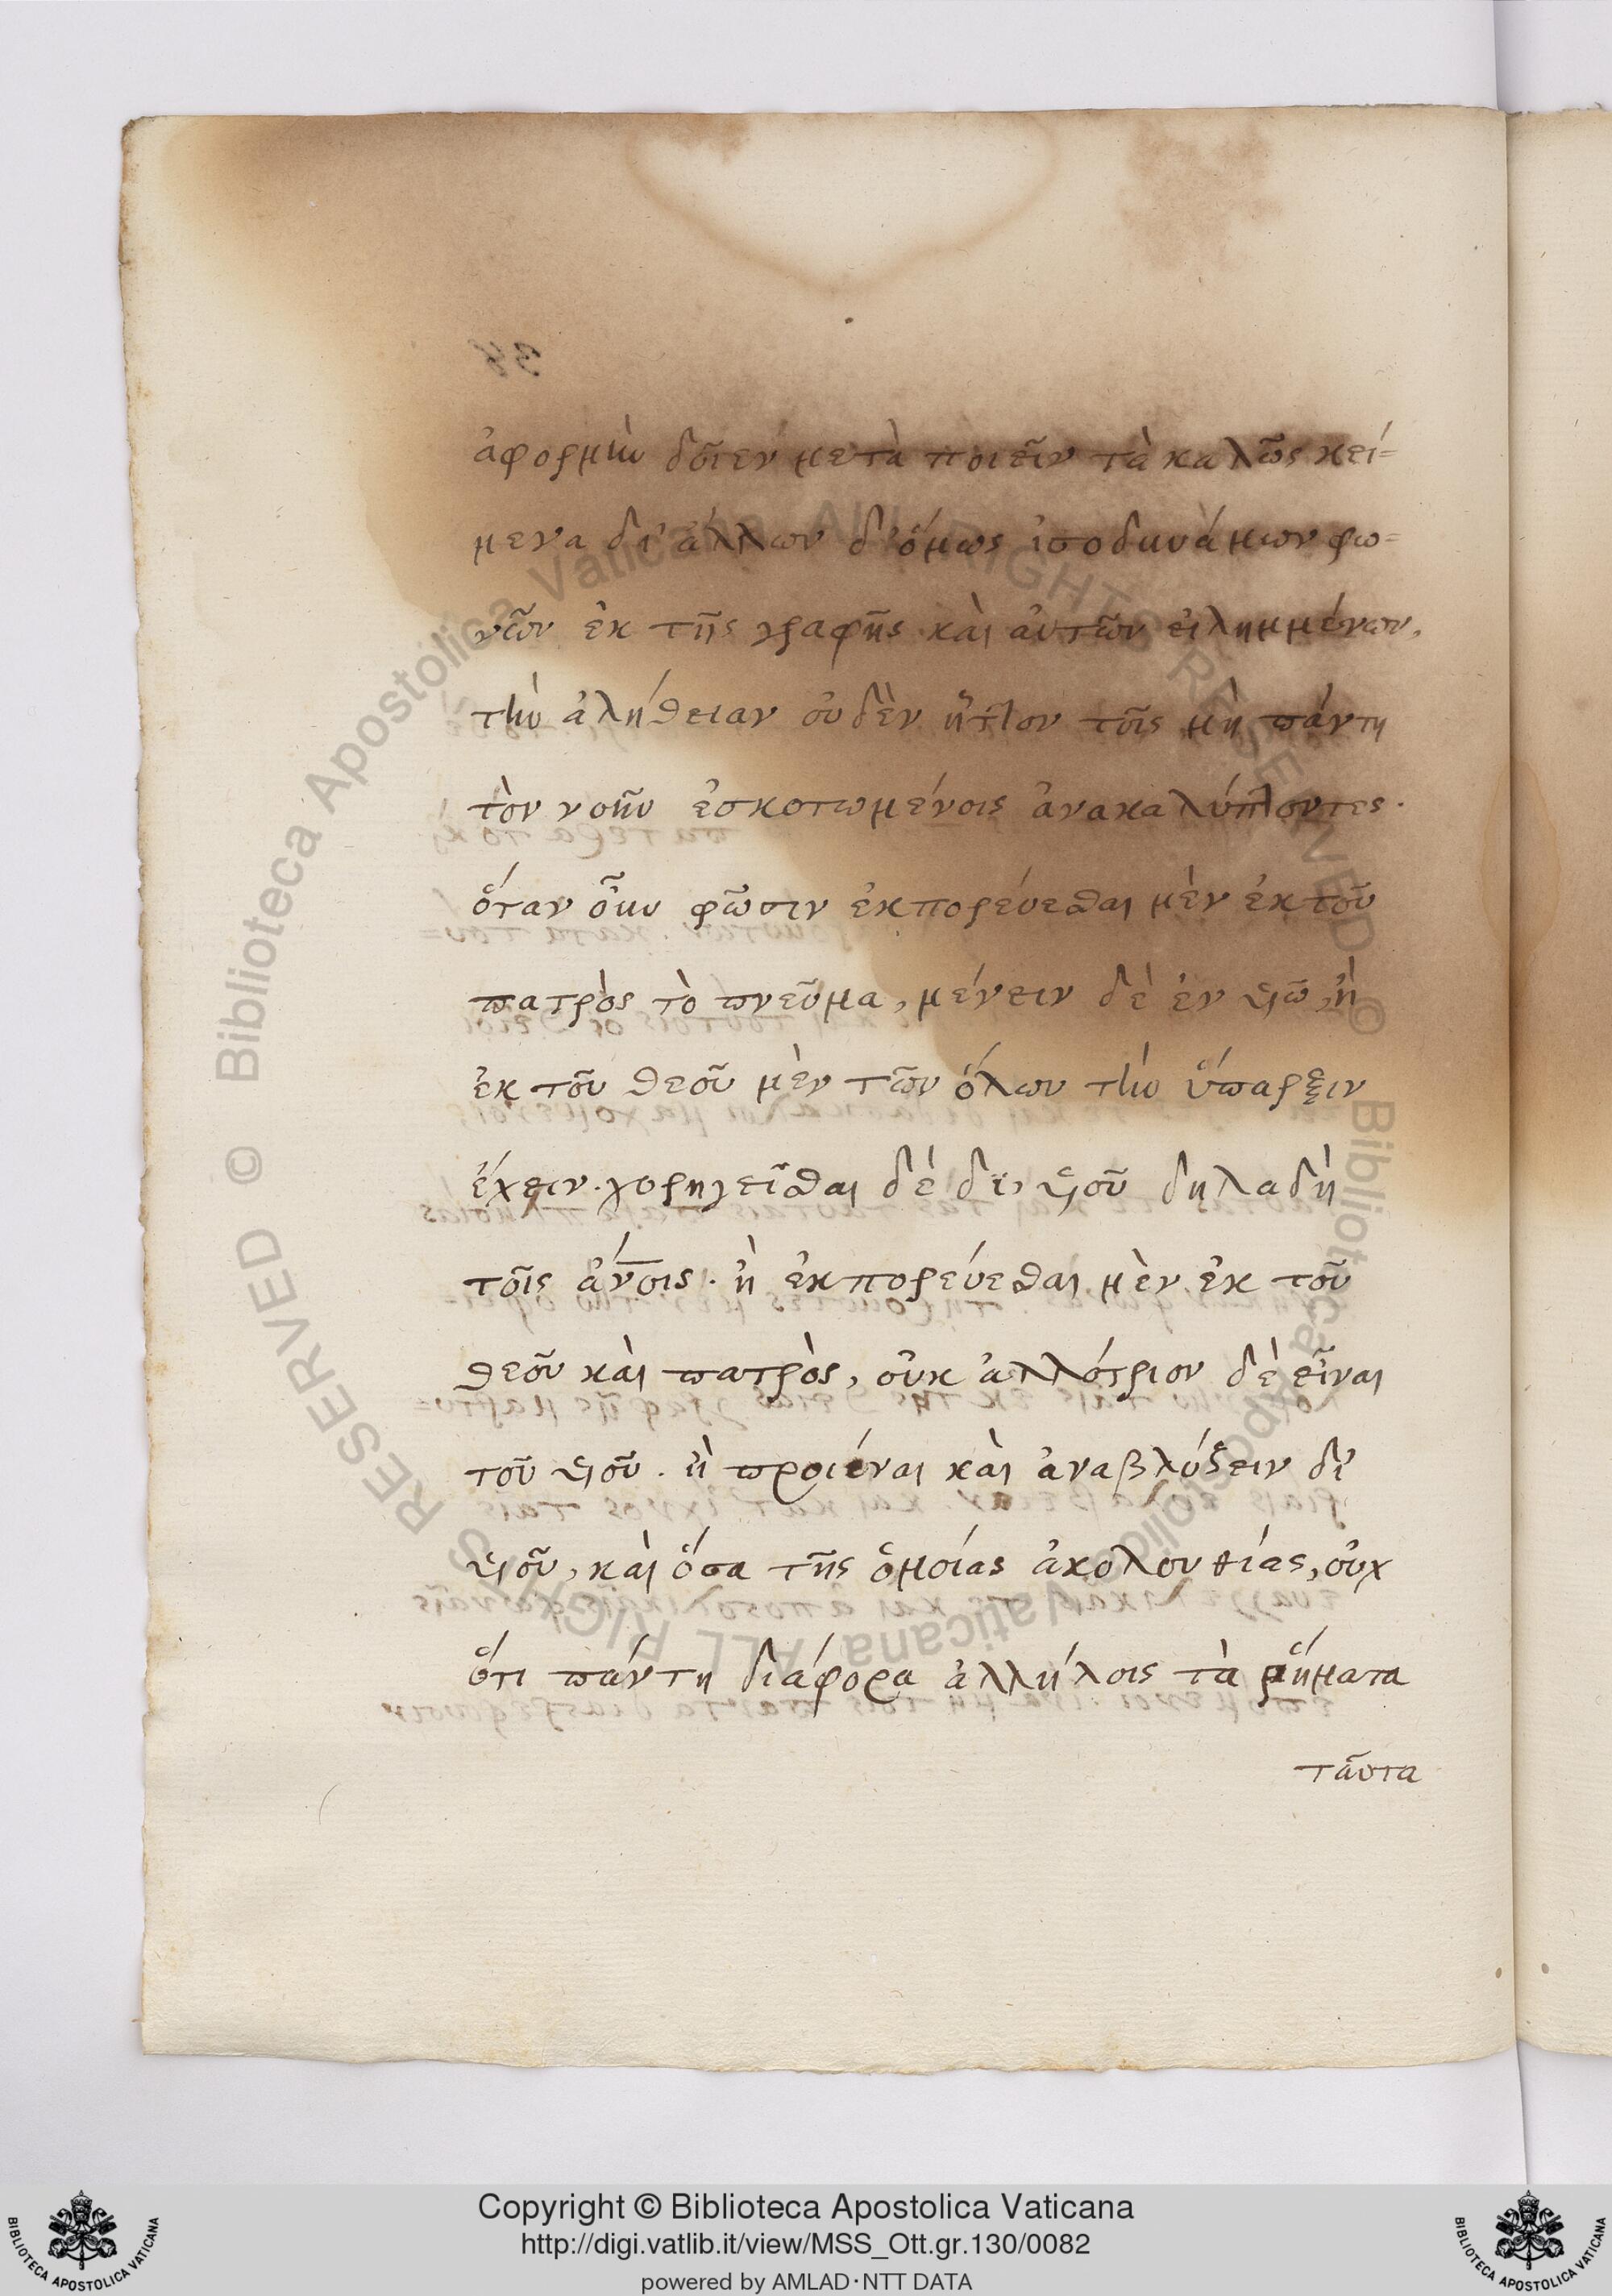 ἀφορμὴν δοῖεν μετὰ ποιεῖν τὰ καλῶς κεί=
μενα δι' ἄλλων δ' ὅμως ἰσοδυνάμων φω=
νῶν ἐκ τῆς γραφῆς καὶ αὐτῶν εἰλημμένων,
τὴν ἀλήθειαν οὐδὲν ἧττον τοῖς μὴ πάντη
τὸν νοῦν ἐσκοτωμένοις ἀνακαλύπτοντες.
ὅταν οὖν φῶσιν ἐκπορεύεσθαι μὲν ἐκ τοῦ
πατρὸς τὸ πνεῦμα, μένειν δὲ ἐν υἱῶ, ἢ
ἐκ τοῦ θεοῦ μὲν τῶν ὅλων τὴν ὕπαρξιν
ἔχειν. χορηγεῖσθαι δὲ δι' υἱοῦ δηλαδὴ
τοῖς ἀν̅οις. ἢ ἐκπορεύεσθαι μὲν ἐκ τοῦ
θεοῦ καὶ πατρὸς, οὐκ ἀλλότριον δὲ εἶναι
τοῦ υἱοῦ. ἢ προιέναι καὶ ἀναβλύζειν δι'
υἱοῦ, καὶ ὅσα τῆς ὁμοίας ἀκολουθίας, οὐχ
ὅτι πάντη διάφορα ἀλλήλοις τὰ ῥήματα
ταῦτα
Copyright © Biblioteca Apostolica Vaticana
http://digi.vatlib.it/view/MSS_Ott.gr.130/0082
powered by AMLAD·NTT DATA
BIBLIOTECA APOSTOLICA VATICANA
BIBLIOTECA APOSTOLICA VATICANA
© Biblioteca Apostolica Vaticana ALL RIGHTS RESERVED
© Biblioteca Apostolica Vaticana ALL RIGHTS RESERVED